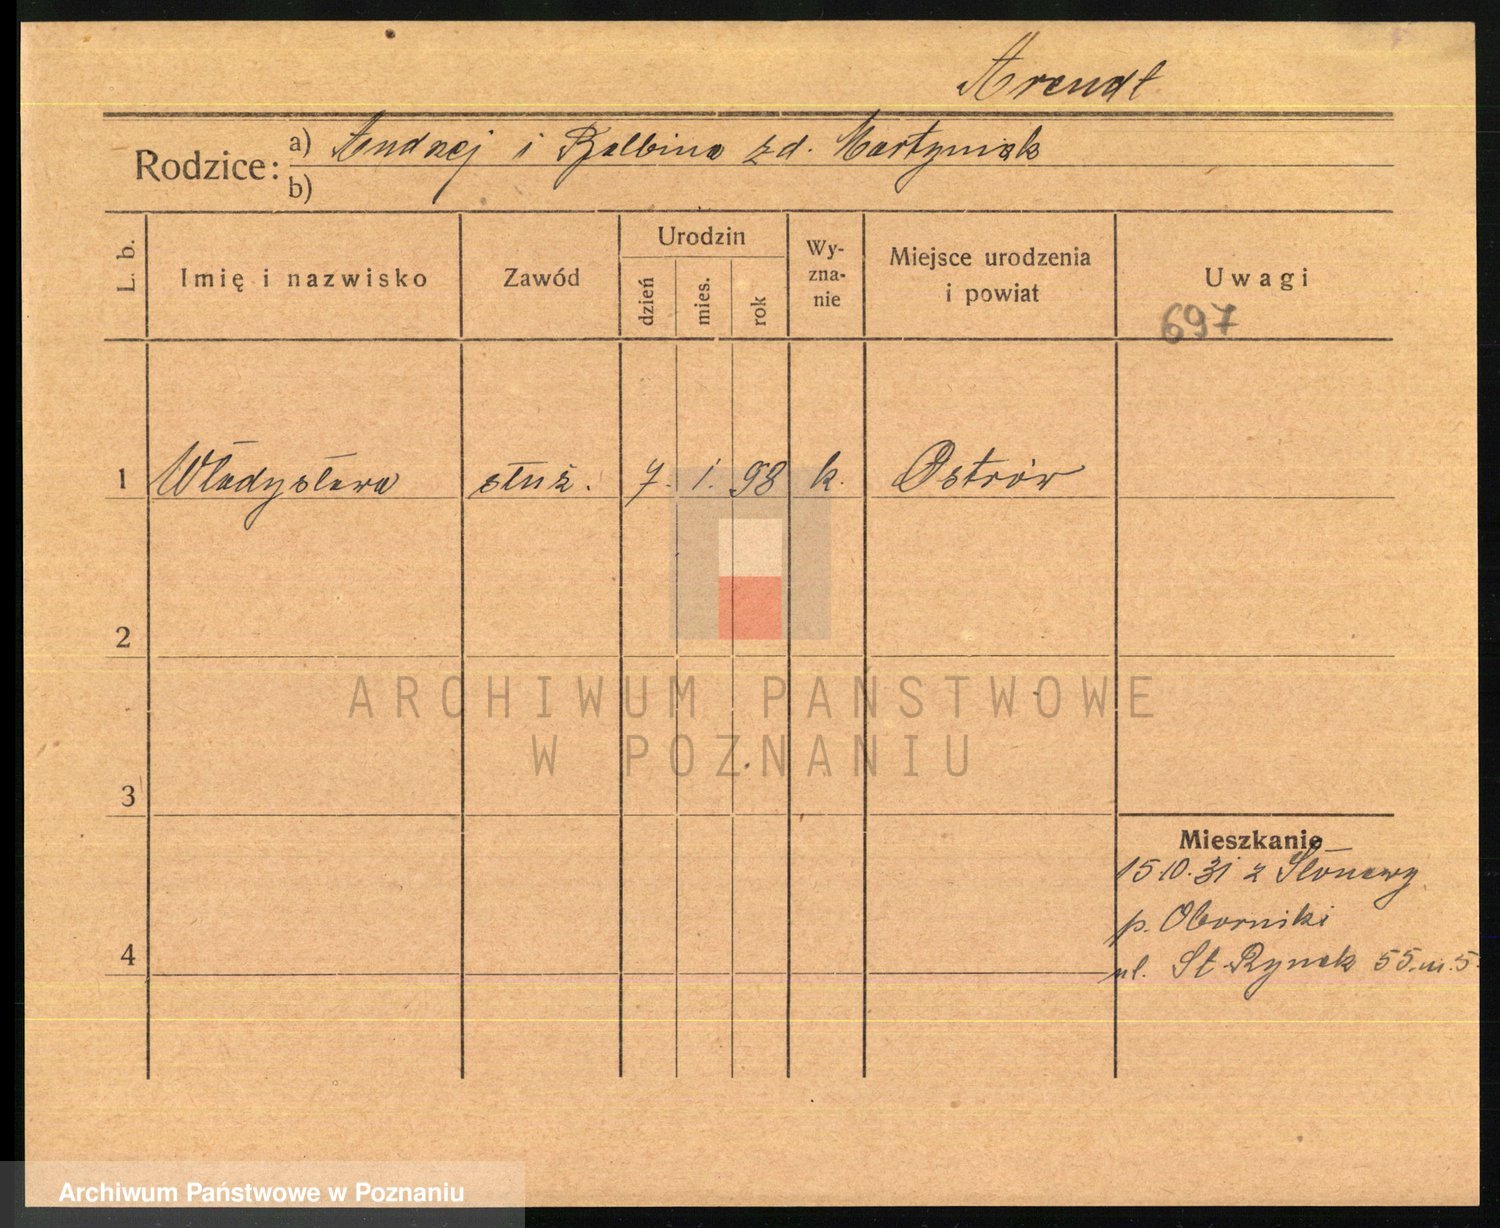 Arendt
Rodzice: a) Andrzej i Balbina z d. Martyniak
b)
L. b.
Imię i nazwisko
Zawód
Urodzin
dzień
mies.
rok
Wy-
zna-
nie
Miejsce urodzenia
i powiat
Uwagi
697
1 Władysława służ. 7. 1. 98 k. Ostrów
2
3
4
Mieszkanie
15.10.31 z Słonawy
p. Oborniki
ul. St. Rynek 55. m. 5
ARCHIWUM PAŃSTWOWE
W POZNANIU
Archiwum Państwowe w Poznaniu